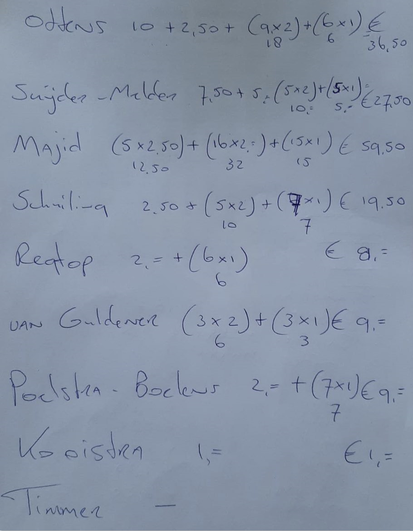 Ottens 10 + 2,50 + (9x2) + (6x1) €
18 6 36,50
Snijder - Melden 7,50 + 5,= (5x2) + (5x1) = €27,50
10,= 5,=
Majid (5x2,50) + (16x2,=) + (15x1) € 59,50
12,50 32 15
Schuiling 2,50 + (5x2) + (7x1) € 19,50
10 7
Regtop 2,= + (6x1) € 8,=
6
van Guldener (3x2) + (3x1) € 9,=
6 3
Poelstra - Boelens 2,= + (7x1) € 9,=
7
Kooistra 1,= € 1,=
Timmer —